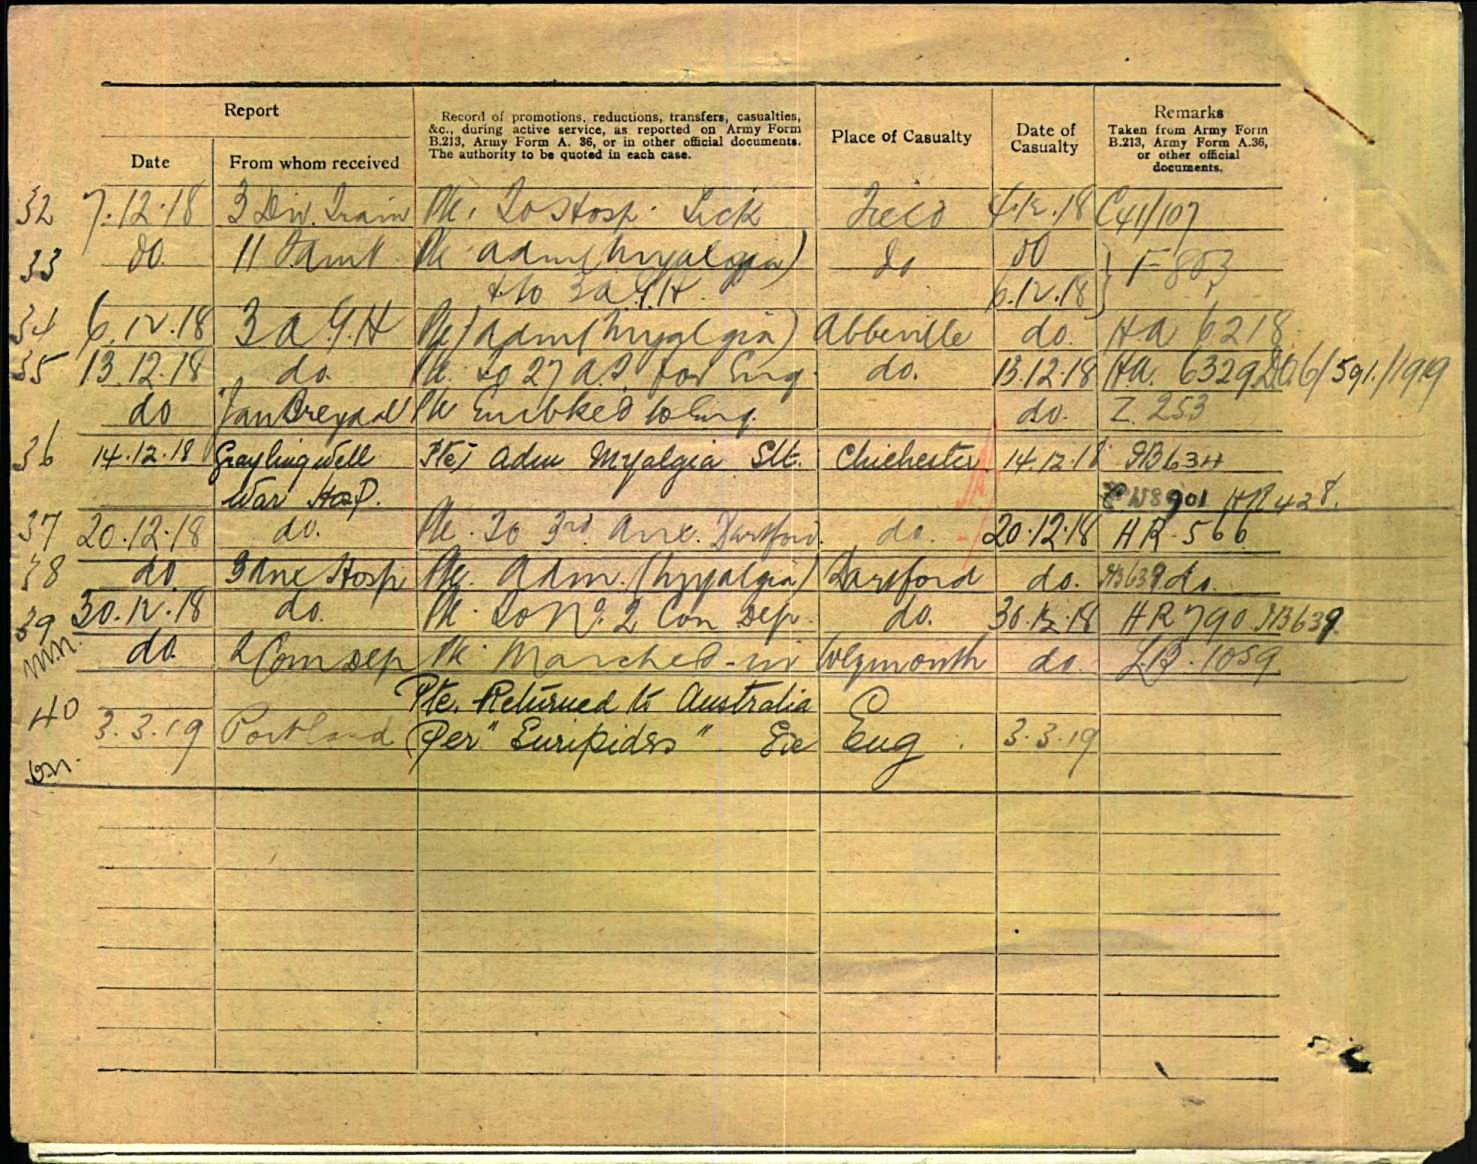 Report
Record of promotions, reductions, transfers, casualties, &c., during active service, as reported on Army Form B.213, Army Form A. 36, or in other official documents. The authority to be quoted in each case.
Place of Casualty
Date of Casualty
Remarks
Taken from Army Form B.213, Army Form A.36, or other official documents.
Date
From whom received
32 7.12.18 3 Div. Train Pte. To Hosp. Sick Field 4.12.18 C41/107
33 do. 11 Pte adm (Myalgia) do do
& to 3 A.G.H. 6.12.18 F 803
34 6.12.18 3 A.G.H Pte adm (Myalgia) Abbeville do. HA 6218
35 13.12.18 do. Pte to 27 A.T. for Eng. do. 13.12.18 HA. 6329 DO6/591/1919
do Jan Breydel Pte Embked to Eng. do. Z. 253
36 14.12.18 Graylingwell Pte Adm Myalgia Slt. Chichester 14.12.18 HB634
War Hosp. 901 HR 428.
37 20.12.18 do. Pte. To 3rd Aux. Dartford. do. 20.12.18 HR. 566
38 do 3 Aux Hosp Pte. Adm. (Myalgia) Dartford do. HB639 do.
39 30.12.18 do. Pte To No. 2 Con Dep. do. 30.12.18 HR 790 HB639
do. 2 Com Dep Pte Marched-in Weymouth do. LB. 1059
40 Pte. Returned to Australia
3.3.19 Portland Per "Euripides" Ex Eng. 3.3.19